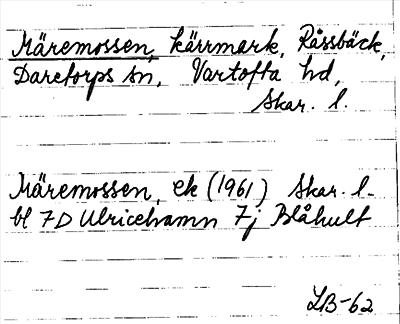 Märemossen, kärrmark, Råssbäck,
Daretorps sn, Vartofta hd,
Skar. l.
Märemossen, ek (1961) Skar. l.
bl 7D Ulricehamn 7j Blåhult
LB-62